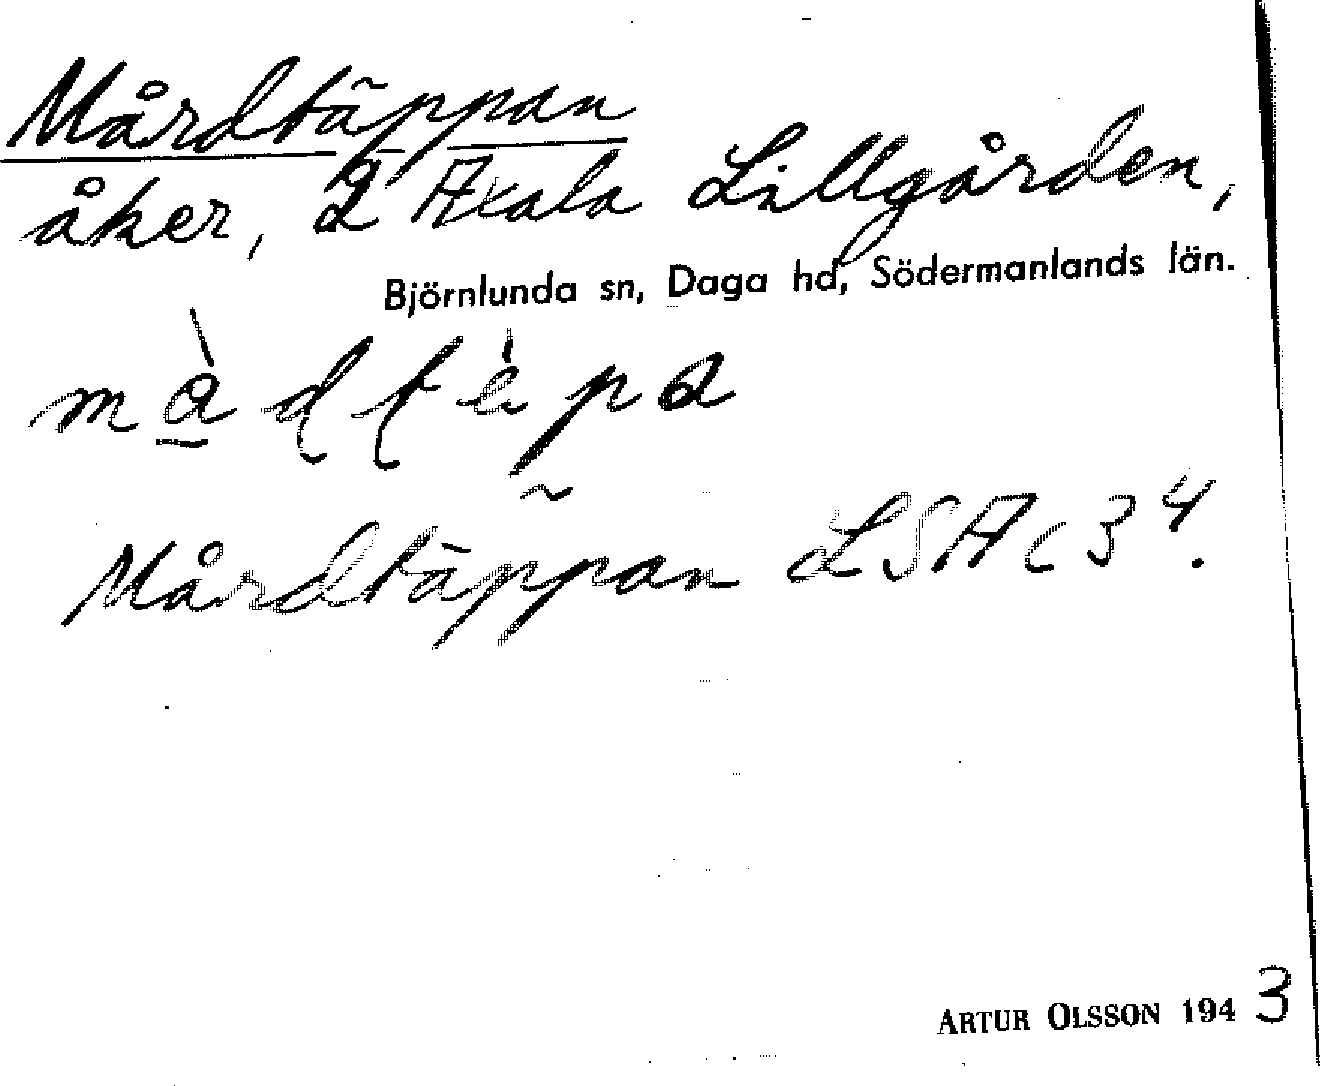 Mårdtäppan
åker, 2 Axala Lillgården,
Björnlunda sn, Daga hd, Södermanlands län.
Mårdtäppan LSA c 34.
ARTUR OLSSON 1943